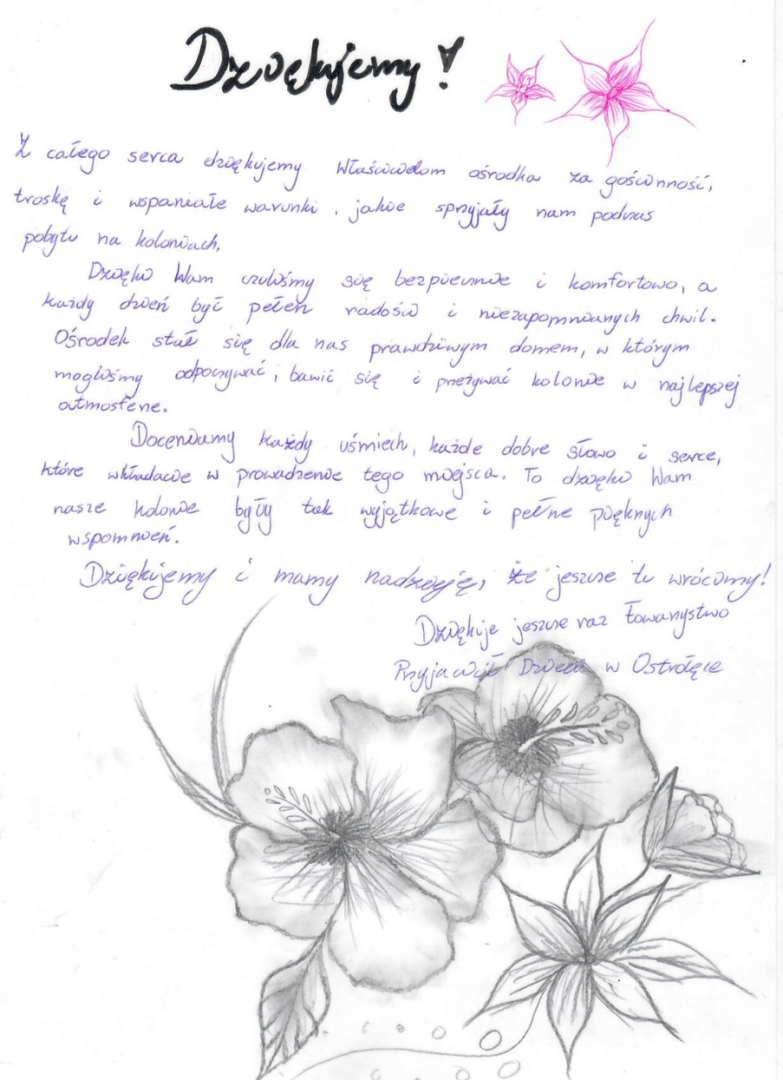 Dziękujemy!
Z całego serca dziękujemy Właścicielom ośrodka za gościnność,
troskę i wspaniałe warunki, jakie sprzyjały nam podczas
pobytu na koloniach.
Dzięki Wam czuliśmy się bezpiecznie i komfortowo, a
każdy dzień był pełen radości i niezapomnianych chwil.
Ośrodek stał się dla nas prawdziwym domem, w którym
mogliśmy odpoczywać, bawić się i przeżywać kolonie w najlepszej
atmosferze.
Doceniamy każdy uśmiech, każde dobre słowo i serce,
które wkładacie w prowadzenie tego miejsca. To dzięki Wam
nasze kolonie były tak wyjątkowe i pełne pięknych
wspomnień.
Dziękujemy i mamy nadzieję, że jeszcze tu wrócimy!
Dziękuje jeszcze raz Towarzystwo
Przyjaciół Dzieci w Ostrołęce